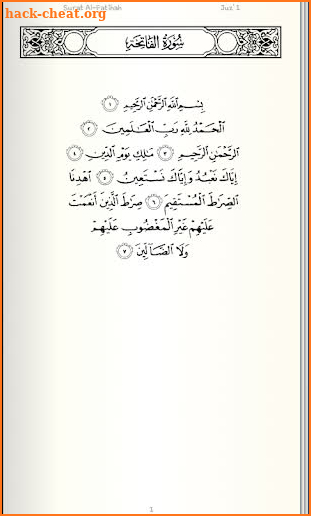 hack-cheat.org
Surat Al-Fatihah Juz'1
سُورَةُ الفَاتِحَةِ
بِسْمِ ٱللَّهِ ٱلرَّحْمَٰنِ ٱلرَّحِيمِ ١
ٱلْحَمْدُ لِلَّهِ رَبِّ ٱلْعَٰلَمِينَ ٢
ٱلرَّحْمَٰنِ ٱلرَّحِيمِ ٣ مَٰلِكِ يَوْمِ ٱلدِّينِ ٤
إِيَّاكَ نَعْبُدُ وَإِيَّاكَ نَسْتَعِينُ ٥ ٱهْدِنَا
ٱلصِّرَٰطَ ٱلْمُسْتَقِيمَ ٦ صِرَٰطَ ٱلَّذِينَ أَنْعَمْتَ
عَلَيْهِمْ غَيْرِ ٱلْمَغْضُوبِ عَلَيْهِمْ
وَلَا ٱلضَّآلِّينَ ٧
1